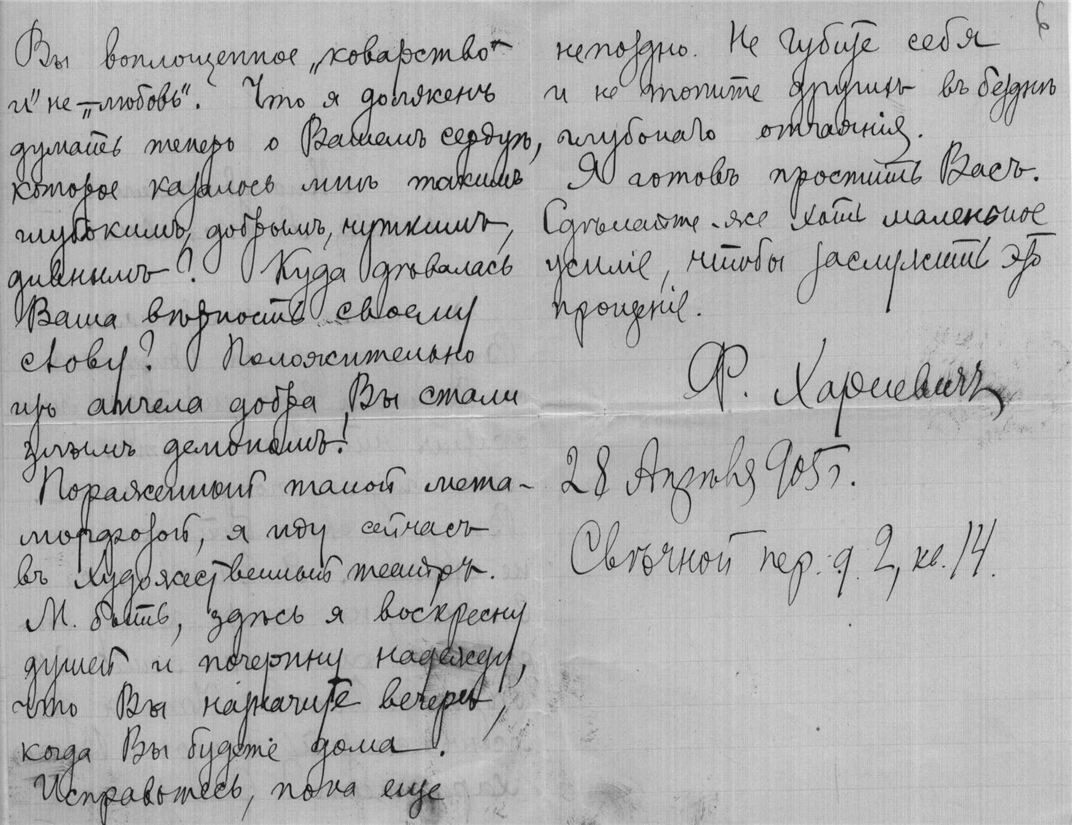 Вы воплощенное „коварство“
и „не-любовь“. Что я долженъ
думать теперь о Вашемъ сердцѣ,
которое казалось мнѣ такимъ
глубокимъ, добрымъ, чуткимъ,
дивнымъ? Куда дѣвалась
Ваша вѣрность своему
слову? Положительно
изъ ангела добра Вы стали
злымъ демономъ!
Пораженный такой мета-
морфозой, я иду сейчасъ
въ Художественный театръ.
М. быть, здѣсь я воскресну
душой и почерпну надежду,
что Вы назначите вечеръ,
когда Вы будете дома.
Исправьтесь, пока еще
6
непоздно. Не губите себя
и не топите другихъ въ безднѣ
глубокаго отчаянія.
Я готовъ простить Васъ.
Сдѣлайте-же хоть маленькое
усиліе, чтобы заслужить это
прощеніе.
Ф. Харкевичъ
28 Апрѣля 905 г.
Свѣчной пер. д. 2, кв. 14.